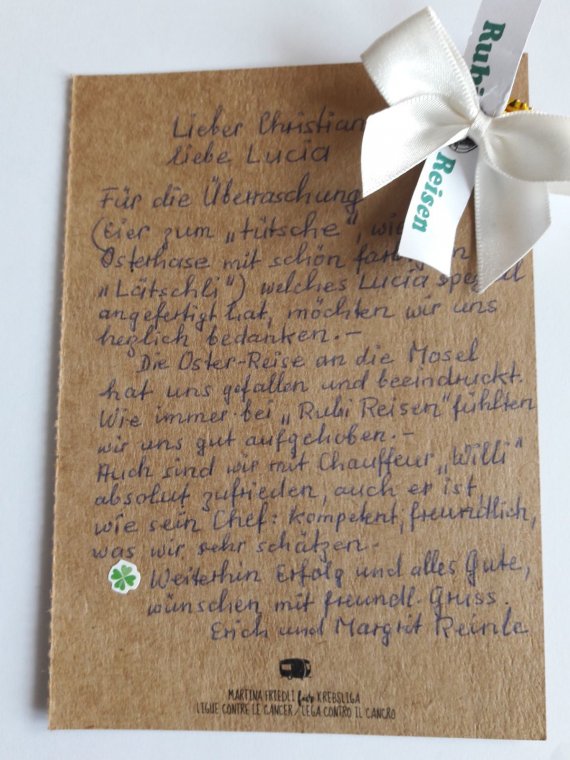 Lieber Christian
liebe Lucia
Rubi Reisen
Für die Überraschung
(Eier zum "tütsche",
Osterhase mit schön
"Lätschli") welches Lucia
angefertigt hat, möchten wir uns
herzlich bedanken.-
Die Oster-Reise an die Mosel
hat uns gefallen und beeindruckt.
Wie immer bei "Rubi Reisen" fühlten
wir uns gut aufgehoben.-
Auch sind wir mit Chauffeur "Willi"
absolut zufrieden, auch er ist,
wie sein Chef: kompetent, freundlich,
was wir sehr schätzen.-
Weiterhin Erfolg und alles Gute,
wünschen mit freundl. Gruss.
Erich und Margrit
MARTINA FRIEDLI für KREBSLIGA
LIGUE CONTRE LE CANCER / LEGA CONTRO IL CANCRO